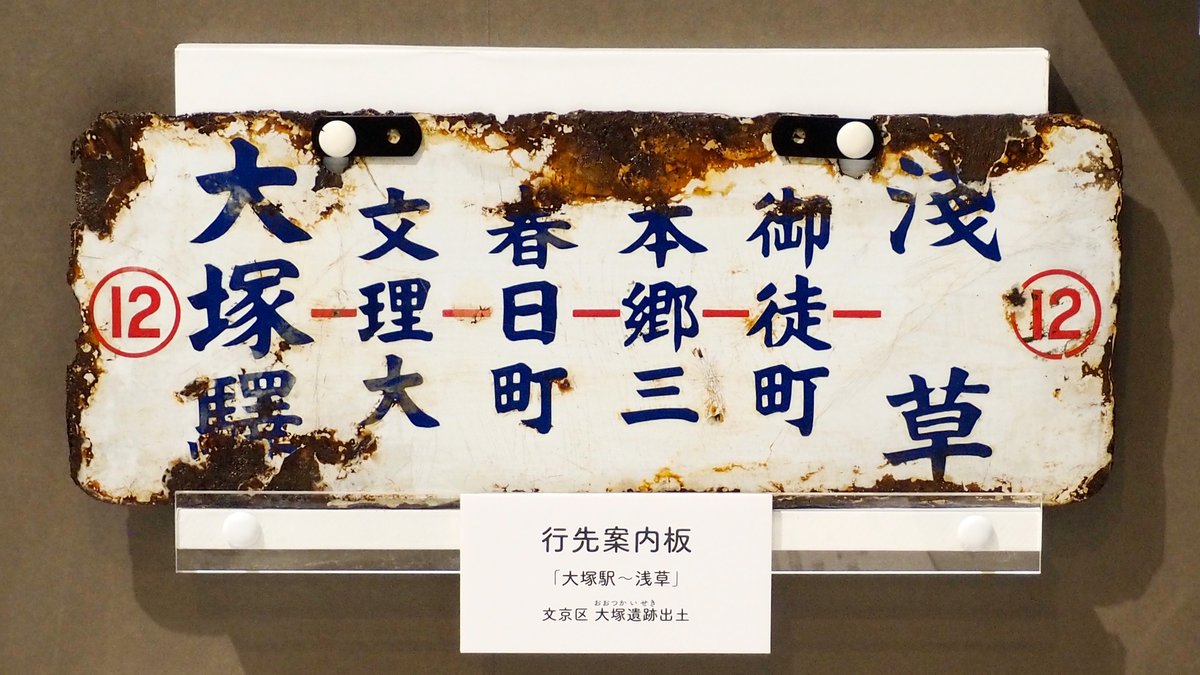 ⑫
大塚驛
文理大
春日町
本郷三
御徒町
淺草
⑫
行先案内板
「大塚駅～浅草」
おおつかいせき
文京区 大塚遺跡出土